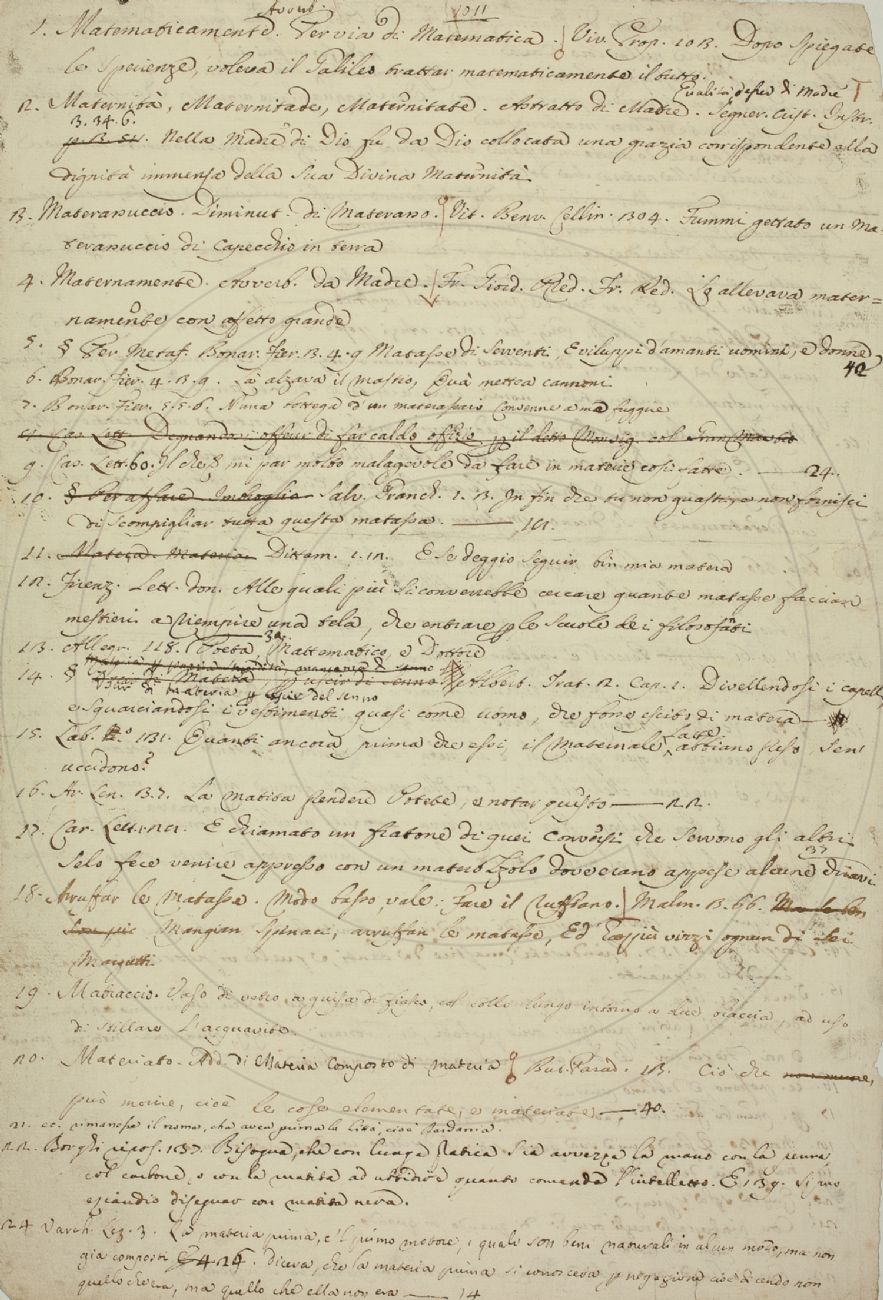 Avverb. 1011
1. Matematicamente. Per via di Matematica. Viv. Prop. 103. Dopo spiegate
le sperienze, voleva il Galileo trattar matematicamente il tutto.
Qualità, d'esser di Madre
2. Maternità, Maternitade, Maternitate. Astratto di Madre. Segner. Crist. Instr.
3. 34. 6.
Nella Madre di Dio fu da Dio collocata una grazia corrispondente alla
dignità immensa della Sua Divina Maternità
3. Materassuccio. Diminut. di Materasso. Vit. Benv. Cellin. 304. Fummi gettato un Ma-
terassuccio di capecchio in terra
4. Maternamente. Avverb. da Madre. Fr. Giord. Pred. La allevava mater=
namente con affetto grande
5. § Per Metaf. Bonar. Fier. 3. 4. 9 Matasse di serventi, e viluppi d'amanti uomini, e donne
42
6. Bonar. Fier. 4. 3. 9. Là alzava il mastio, quà mettea cannoni
7. Bonar. Fier. 5. 5. 6. N'una bottega d'un materassaio convenne a me fuggire
col
9. Cas. Lett. 60. Il che mi par molto malagevole da fare in materie così fatte. — 24.
10. § Salv. Granch. 1. 3. In fin che tu non guasti, e non fornisci
di scompigliar tutta questa matassa. —
11. Matera. Materia. Dittam. 1. E se deggio seguir ben mia matera
12. Firenz. Lett. don. Alle quali più si converrebbe cercare quante matasse faccian
mestieri a riempire una tela, che entrare per le scuole dei filosofanti
13. Allegr. 118. Poeta, Mattematico, e Dottore
14. §
Matera, p uscir di senno Albert. Trat. 2. Cap. 1. Divellendosi i capelli
di materia p uscir del senno
e squarciandosi i vestimenti quasi come uomo, che fosse escito di matera —
15. Lab. 131. Quanti ancora prima che essi, il maternale latte abbiano preso, sen
uccidono?
16. Ar. Len. 3. 7. La matita prendere Potete, e notar questo — 22.
17. Car. Lett. E chiamato un fratone di quei conversi che servono gli altri
37
Selo fece venire appresso con un dove erano appese alcune chiavi
18. Arruffar le Matasse. Modo basso, vale: Fare il Ruffiano. Malm. 3. 66.
Mangian spinaci, arruffan le matasse, Ed ognun di lei
19. Matraccio. Vaso di vetro, a guisa di fiasco, col collo lungo intorno a due braccia, ad uso
di stillare l'acquavite.
20. Materiato. Add. di Materia Composto di materia But. Parad. 13. Ciò che
può morire, cioè le cose elementate, e materiate, — 40.
21. ec. rimanesse il nome, che avea prima la Città, cioè Dardania.
22. Borgh. ripos. 137. Bisogna, che con lunga pratica sia avvezza la mano con la penna
col carbone, o con la matita ad ubbidire quanto comanda l'intelletto. E 139. Si può
eziandio disegnar con matita nera.
24 Varch. Lez. 3. La materia prima, e'l primo motore, i quali son beni naturali in alcun modo, ma non
già composti E 424. Diceva, che la materia prima si conosceva p negazione cioè dicendo non
quello ch'era, ma quello che ella non era — 14